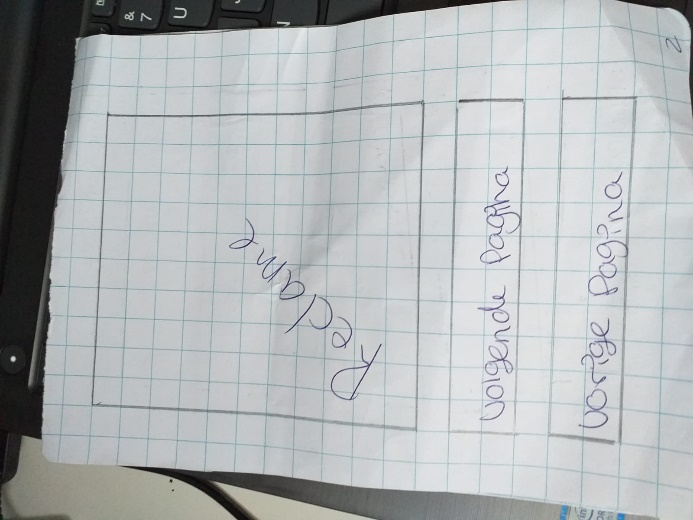 Reclame
volgende pagina
vorige pagina
2
& 7
U